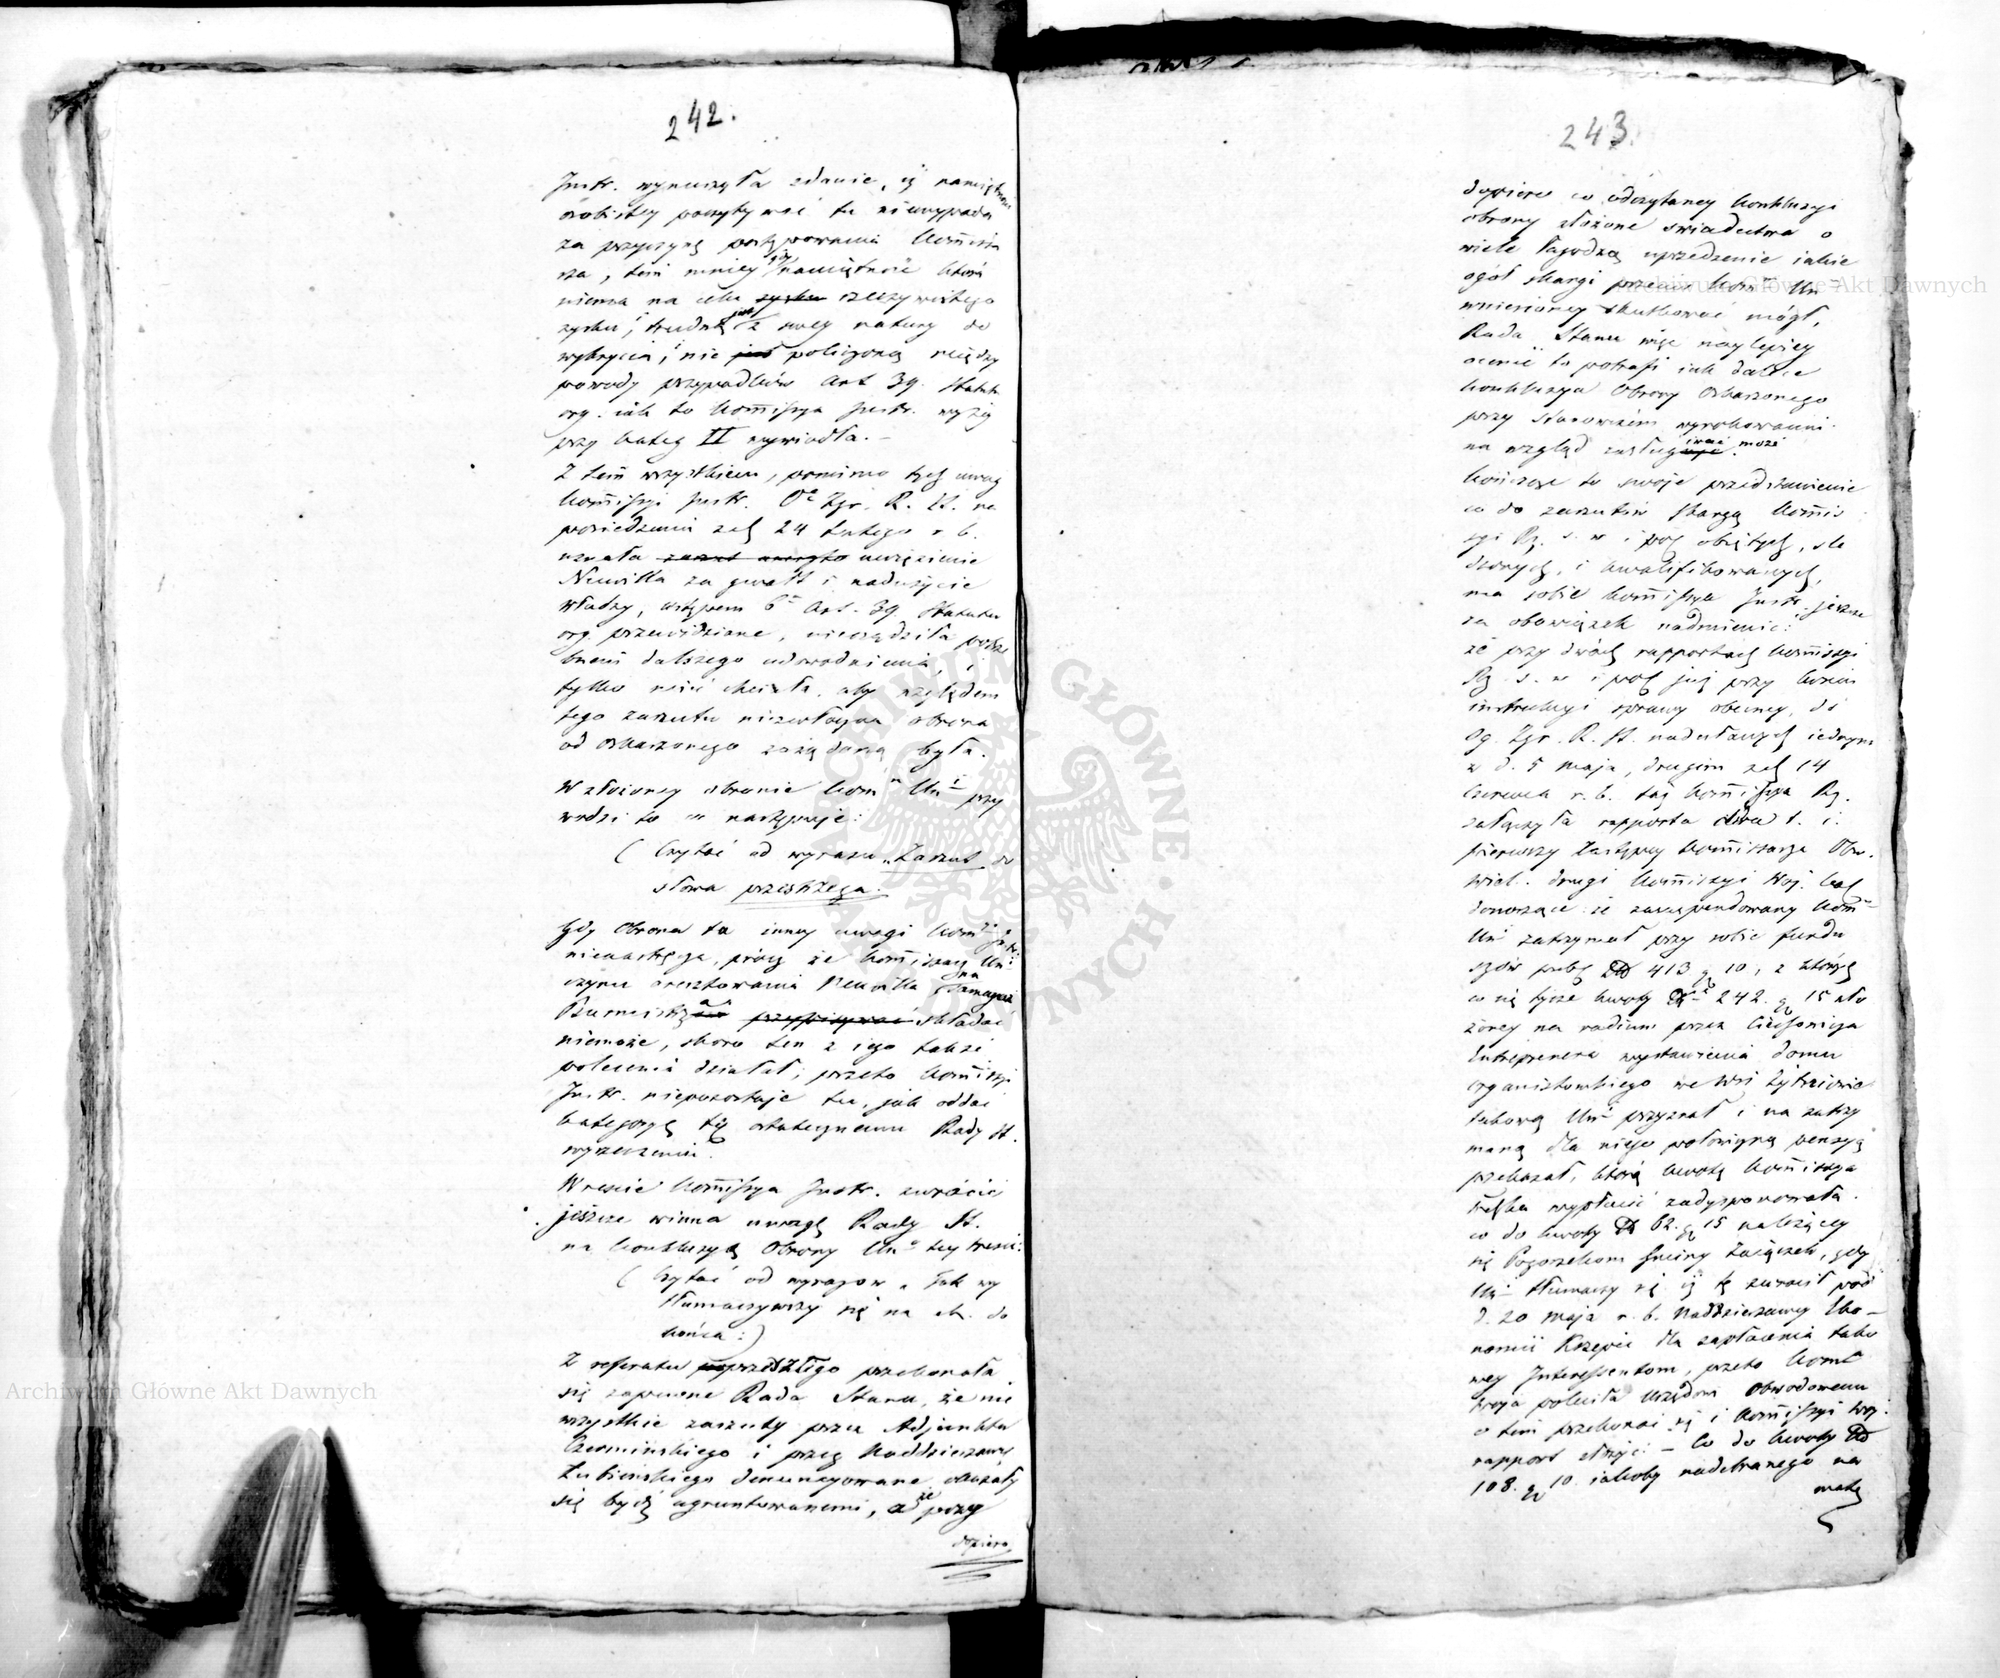 242.
Instr. wynurzyła zdanie, iż namiętności
osobistey poczytywać tu niewypada
za przyczynę postępowania Kom̃isa
rza, tem mniey gdy namiętność która
niema na celu zysku rzeczywistego
zysku, trudną jest z swey natury do
wykrycia, nie jest policzoną między
powody przypadków Art 39. Statutu
org. iak to Kom̃issya Instr. wyżey
przy Kateg II wywiodła. –
Z tem wszystkiem, pomimo tych uwag
Kom̃issyi Instr. Oe Zgr. R. St. na
posiedzeniu z d. 24 Lutego r. b.
uznała zarzut uwięzienie
Neuvilla za gwałt i nadużycie
władzy, ustępem 6m Art. 39 Statutu
org. przewidziane, nieosądziła potrze
bnem dalszego udowodnienia, i
tylko mieć chciała, aby względem
tego zarzutu niezwłoczna obrona
od oskarżonego zażądaną była.
W złożoney obronie Kom. Un przy
wodzi to co następuje:
( Czytać od wyrazu „Zarzut do
słowa przestrzega.
Gdy Obrona ta inney uwagi Kom̃i Instr.
nienastręcza, prócz że Kom̃issarz Un
czynu aresztowania Neuvilla na samego
Burmistrza przypisywać składać
niemoże, skoro ten z iego także
polecenia działał; przeto Kom̃issyi
Instr. niepozostaje tu, jak oddać
kategoryę tę ostatecznemu Rady St.
wyrzeczeniu.
Wreście Kom̃issya Instr. zwrócić
jeszcze winna uwagę Rady St.
na konkluzyą Obrony Un tey treści:
( Czytać od wyrazow „ Jak wy
tłumaczywszy się na ch. do
końca: )
Z referatu poprzedszłego przekonała
się zapewne Rada Stanu, że nie
wszystkie zarzuty przez Adjunkta
Czemińskiego i przez Naddzierżawcę
Łubieńskiego denuncyowane okazały
się bydź ugruntowanemi, a że przy
dopiero
243.
dopiero co odczytaney konkluzyi
obrony złożone świadectwa o
wiele łagodzą uprzedzenie iakie
ogół skargi przeciw Kom Un
wniesioney skutkować mógł,
Rada Stanu więc naylepiey
ocenić to potrafi iak dalece
konkluzya Obrony Oskarżonego
przy stanowczem wyrokowaniu
na wzgląd zasługiwać może
Kończąc to swoje przedstawienie
co do zarzutów skargą Kom̃is
syi Rz. S. W. i Pol. objętych, śle
dzonych, i kwalifikowanych,
ma sobie Kom̃issya Instr. jeszcze
za obowiązek nadmienić:
że przy dwóch rapportach Kom̃issyi
Rz. S. W i Pol już przy końcu
instrukcyi sprawy obecney, do
Og. Zgr. R. St. nadesłanych iednym
z d. 5 maja, drugim z d 14
Czerwca r. b. taż Kom̃issya Rz.
załączyła rapporta dwa t. i.
pierwszy Zastępcy Kom̃issarza Obw.
Wiel. drugi Kom̃issyi Woj. Kal
donoszące że zasuspendowany Kom
Un zatrzymał przy sobie fundu
szów publ. Zł 413 gr 10, z których
co się tycze kwoty Zł 242. gr 15 zło
żoney na vadium przez
Entreprenera wystawienia domu
organistowskiego we Wsi
takową Un przyznał i na zatrzy
maną dla niego połowiczną pensyą
przekazał, którą kwotę Kom̃issya
też wypłacić zadysponowała.
co do kwoty Zł 62. gr 15 należącey
się Pogorzelcom Gminy, gdy
Un tłumaczy się iż tę zwrócił pod
d. 20 maja r. b. Naddzierżawcy Eko –
nomii Rzepin dla zapłacenia tako
wey Interessentom, przeto Kom̃is
syja poleciła Urzędowi Obwodowemu
o tem przekonać się i Kom̃issyi Woj.
rapport złożyć. – Co do kwoty Zł
108. gr 10. iakoby nadebranego na
mate